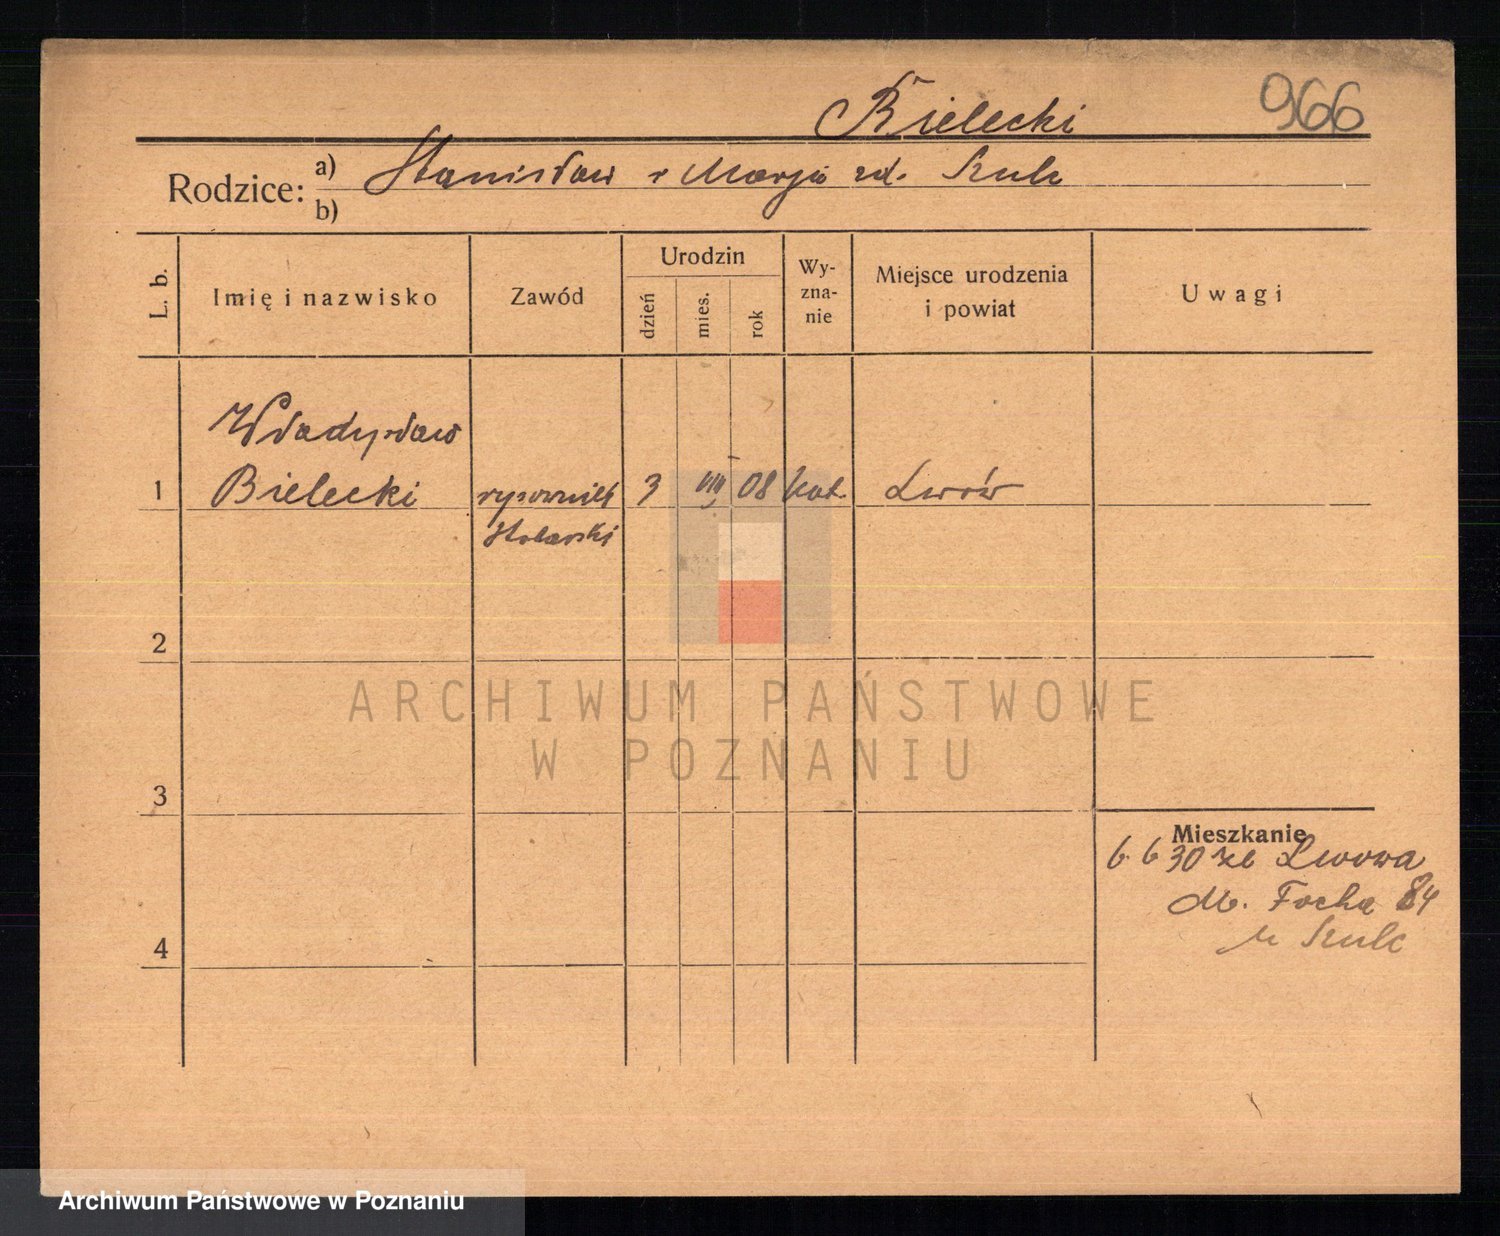 966
Bielecki
Rodzice: a) Stanisław i Marja zd. Szulc
b)
L. b. Imię i nazwisko Zawód Urodzin dzień mies. rok Wy-zna-nie Miejsce urodzenia i powiat Uwagi
Władysław
1 Bielecki rysownik 3 VIII 08 kat. Lwów
stolarski
2
ARCHIWUM PAŃSTWOWE
W POZNANIU
3
Mieszkanie
6.6 30 ze Lwowa
M. Focha 84
u Szulc
4
Archiwum Państwowe w Poznaniu